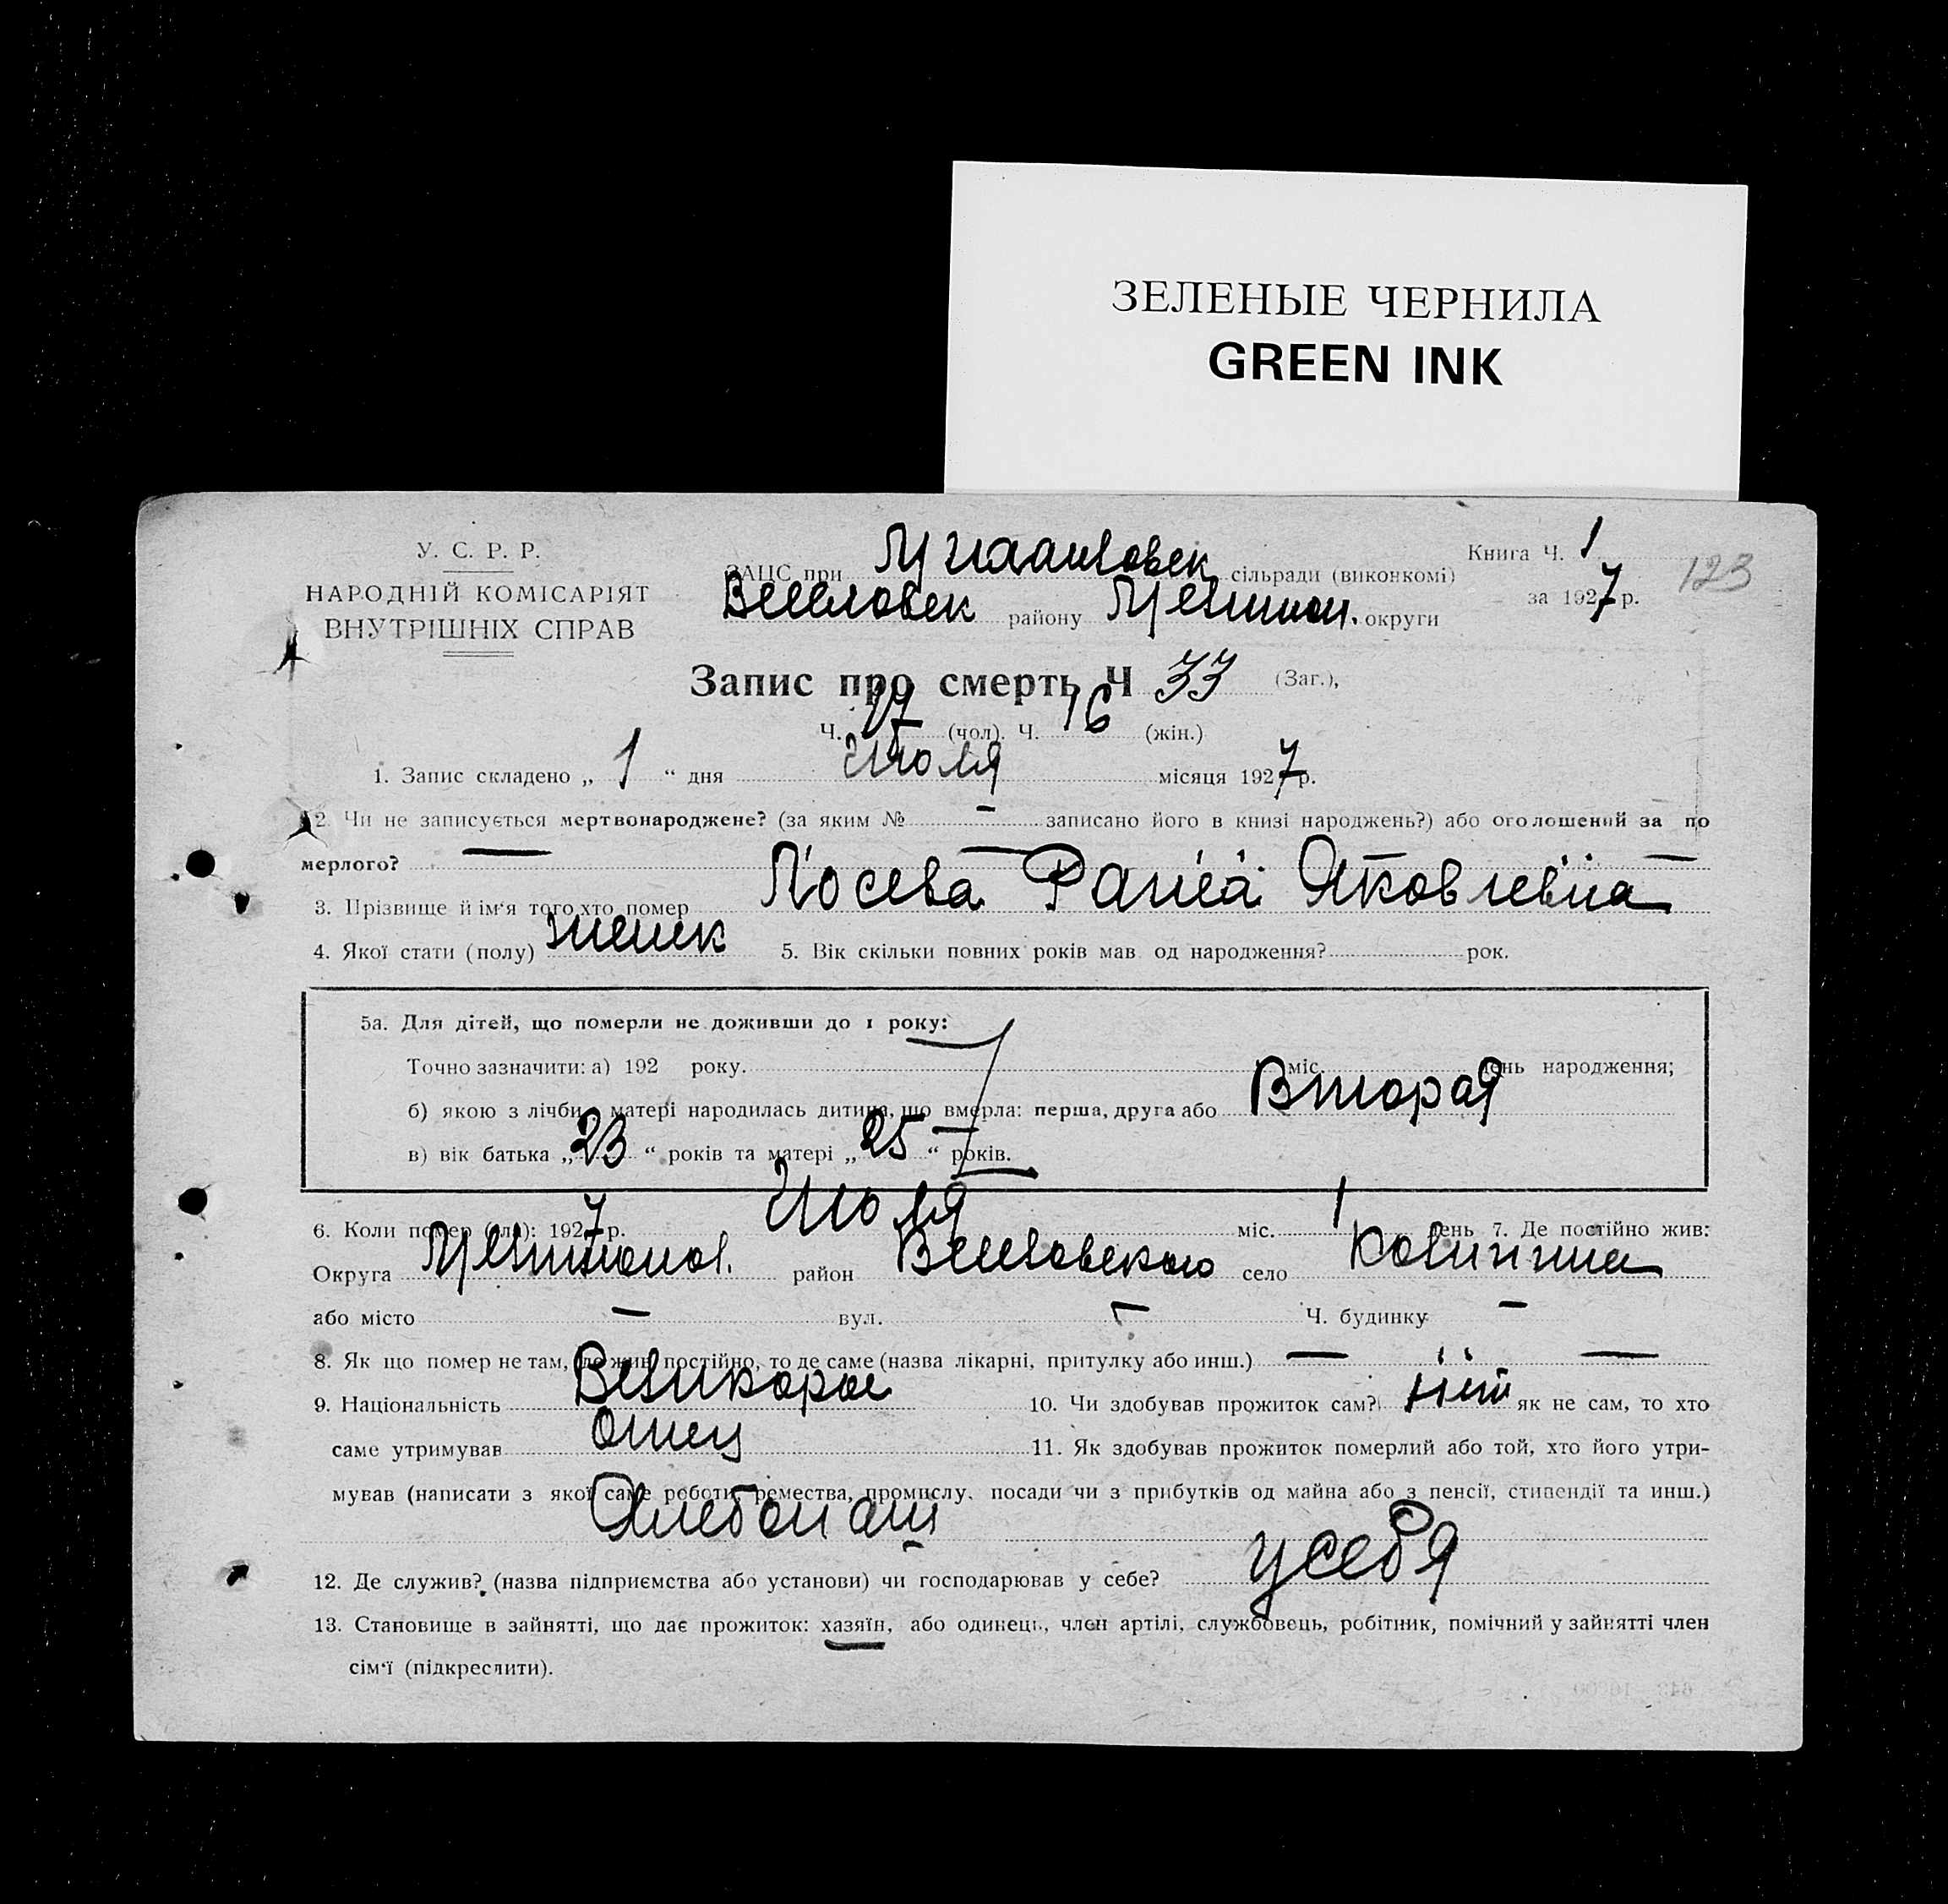 ЗЕЛЕНЫЕ ЧЕРНИЛА
GREEN INK
У. С. Р. Р.
НАРОДНІЙ КОМІСАРІЯТ
ВНУТРІШНІХ СПРАВ
Книга Ч. 1
123
ЗАЦС при сільради (виконкомі)
за 1927 р.
району округи
Запис про смерть Ч 33 (Заг.),
Ч. 17 (чол). Ч. 16 (жін.)
1. Запис складено „ 1 “ дня Июля місяця 1927 р.
2. Чи не записується мертвонароджене? (за яким № — записано його в книзі народжень?) або оголошений за по
мерлого? — — —
3. Прізвище й ім'я того хто помер Лосева Яковлевна
4. Якої стати (полу) женск 5. Вік скільки повних років мав од народження? рок.
5а. Для дітей, що померли не доживши до 1 року:
Точно зазначити: а) 192 року. міс. день народження;
б) якою з лічби у матері народилась дитина, що вмерла: перша, друга або Вторая
в) вік батька „ 23 “ років та матері „ 25 “ років.
6. Коли помер (ла): 1927 р. Июля міс. 1 день 7. Де постійно жив:
Округа район село
або місто — вул. — Ч. будинку —
8. Як що помер не там, де жив постійно, то де саме (назва лікарні, притулку або инш.) — —
9. Національність Великорос 10. Чи здобував прожиток сам? ніт як не сам, то хто
саме утримував Отец 11. Як здобував прожиток померлий або той, хто його утри-
мував (написати з якої саме роботи, ремества, промислу, посади чи з прибутків од майна або з пенсії, стипендії та инш.)
Хлебопаш
12. Де служив? (назва підприємства або установи) чи господарював у себе? у себя
13. Становище в зайнятті, що дає прожиток: хазяїн, або одинець, член артілі, службовець, робітник, помічний у зайнятті член
сім'ї (підкреслити).